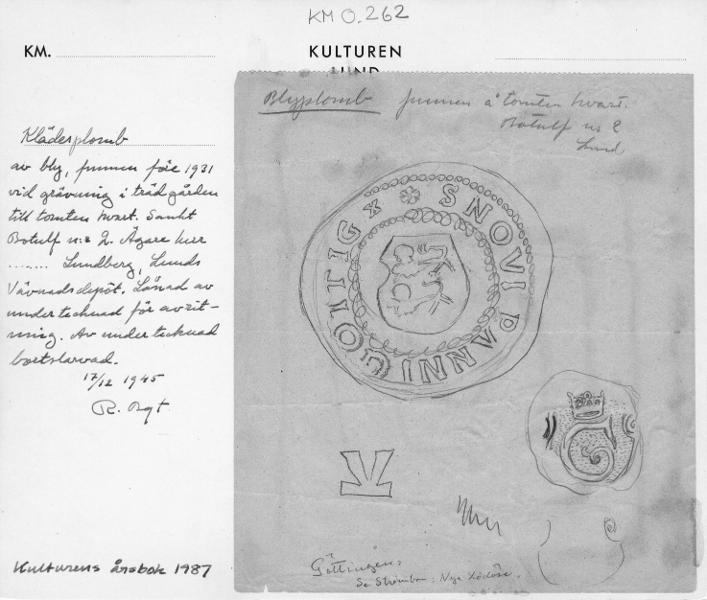 KM O.262
KM.
KULTUREN
LUND
Klädesplomb
av bly, funnen före 1931
vid grävning i trädgården
till tomten kvart. Sankt
Botulf n:o 2. Ägare herr
........ Lundberg, Lunds
Vävnadsdepôt. Lånad av
undertecknad för avrit-
ning. Av undertecknad
bortslarvad.
17/12 1945
Kulturens årsbok 1987
Blyplomb funnen å tomten kvart.
Botulf n:o 2
Lund
SNOVI PANNI GOTTIG x
G
Göttingen.
Se Strömbom: Nya Lödöse.